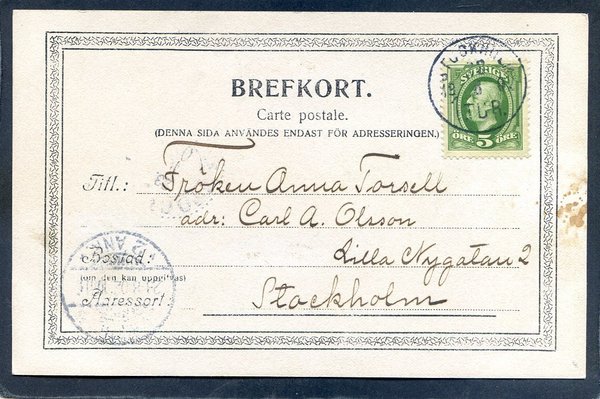 BREFKORT.
Carte postale.
(DENNA SIDA ANVÄNDES ENDAST FÖR ADRESSERINGEN.)
SVERIGE
ÖRE 5 ÖRE
Titl.: Fröken Anna Torsell
adr: Carl A. Olsson
Lilla Nygatan 2
Bostad:
(om den kan uppgifvas)
Stockholm
Adressort
ANK